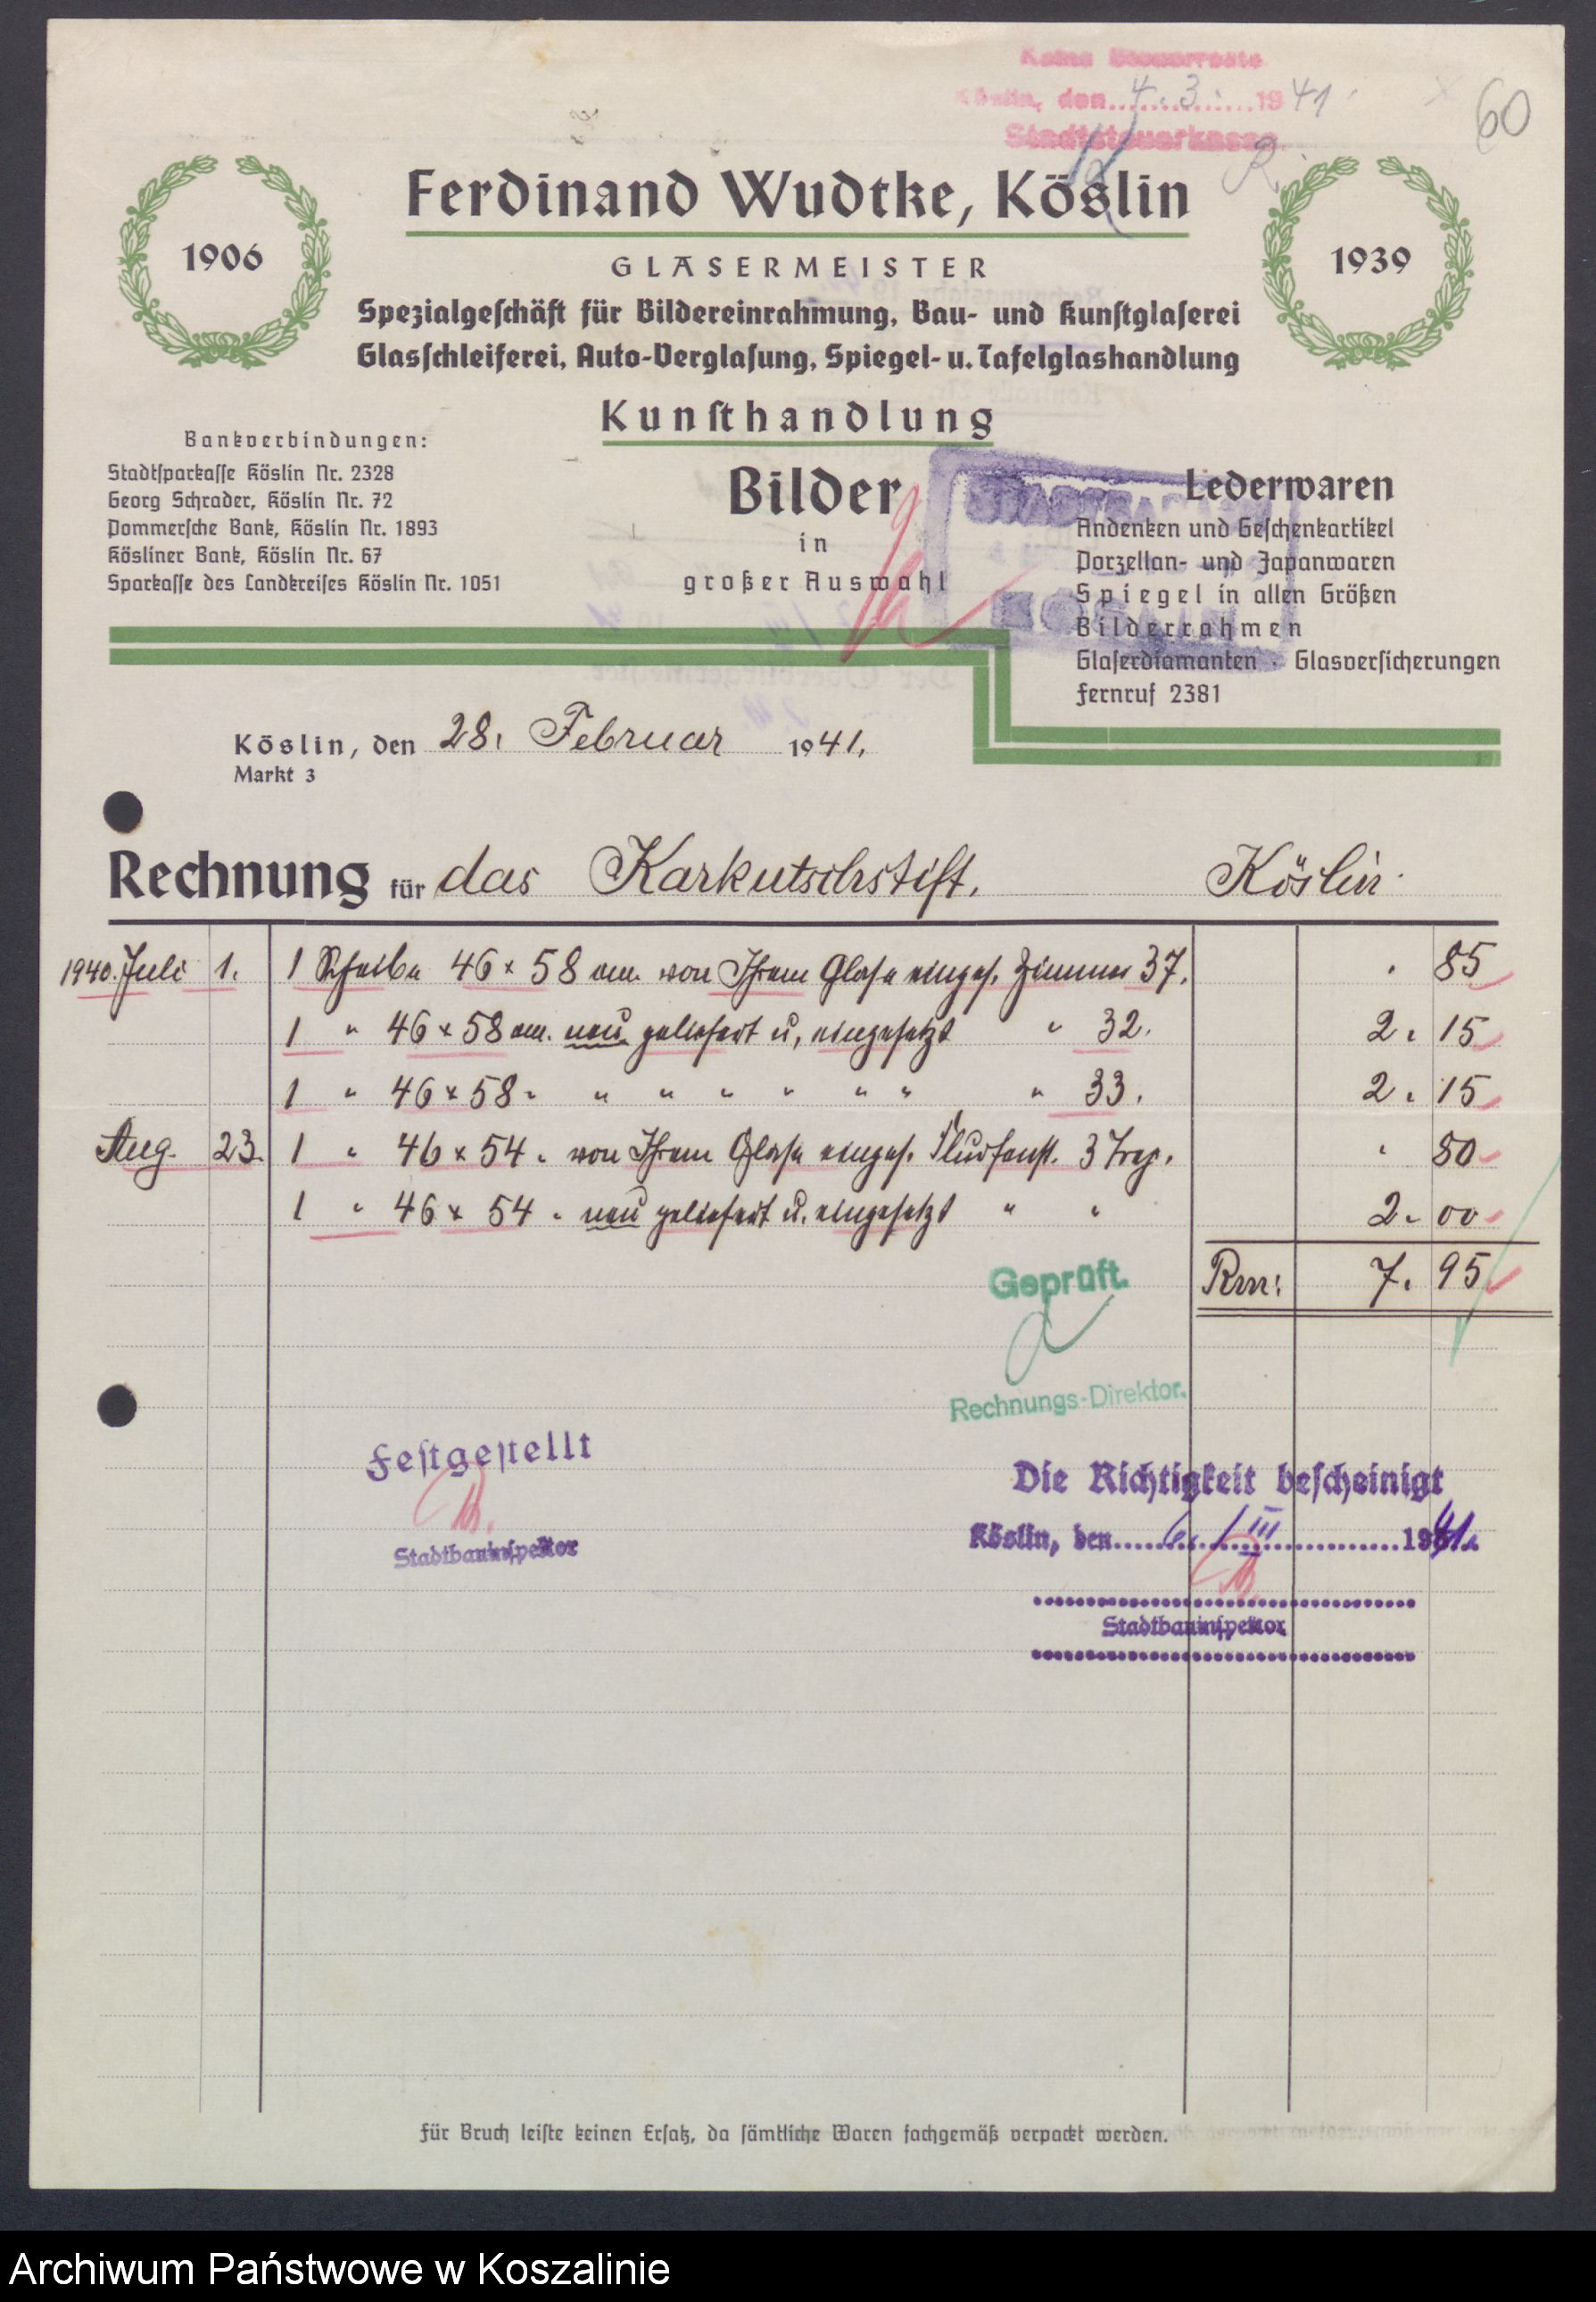 Keine Steuerreste
Köslin, den 4. 3. 1941.
Stadtsteuerkasse
60
Ferdinand Wudtke, Köslin
1906
1939
GLASERMEISTER
Spezialgeſchäft für Bildereinrahmung, Bau- und Kunſtglaſerei
Glasſchleiferei, Auto-Verglaſung, Spiegel- u. Tafelglashandlung
Kunſthandlung
Bankverbindungen:
Stadtſparkaſſe Köslin Nr. 2328
Georg Schrader, Köslin Nr. 72
Pommerſche Bank, Köslin Nr. 1893
Kösliner Bank, Köslin Nr. 67
Sparkaſſe des Landkreiſes Köslin Nr. 1051
Bilder
in
großer Auswahl
KÖSLIN
Lederwaren
Andenken und Geſchenkartikel
Porzellan- und Japanwaren
Spiegel in allen Größen
Bilderrahmen
Glaſerdiamanten · Glasverſicherungen
Fernruf 2381
Köslin, den 28. Februar 1941.
Markt 3
Rechnung für das Karkutschstift. Köslin.
1940. Juli 1. 1 Scheibe 46 x 58 cm. von Ihrem Glase einges. Zimmer 37. . 85
1 " 46 x 58 cm. neu geliefert u. eingesetzt " 32. 2. 15
1 " 46 x 58 " " " " " " " " 33. 2. 15
Aug. 23. 1 " 46 x 54 " von Ihrem Glase einges. Flurfenst. 3 Trep. . 80
1 " 46 x 54 " neu geliefert u. eingesetzt " " 2. 00
Rm: 7. 95
Geprüft.
Rechnungs-Direktor.
Feſtgeſtellt
Stadtbauinſpektor
Die Richtigkeit beſcheinigt
Köslin, den 6. / III 1941.
Stadtbauinſpektor
Für Bruch leiſte keinen Erſatz, da ſämtliche Waren fachgemäß verpackt werden.
Archiwum Państwowe w Koszalinie